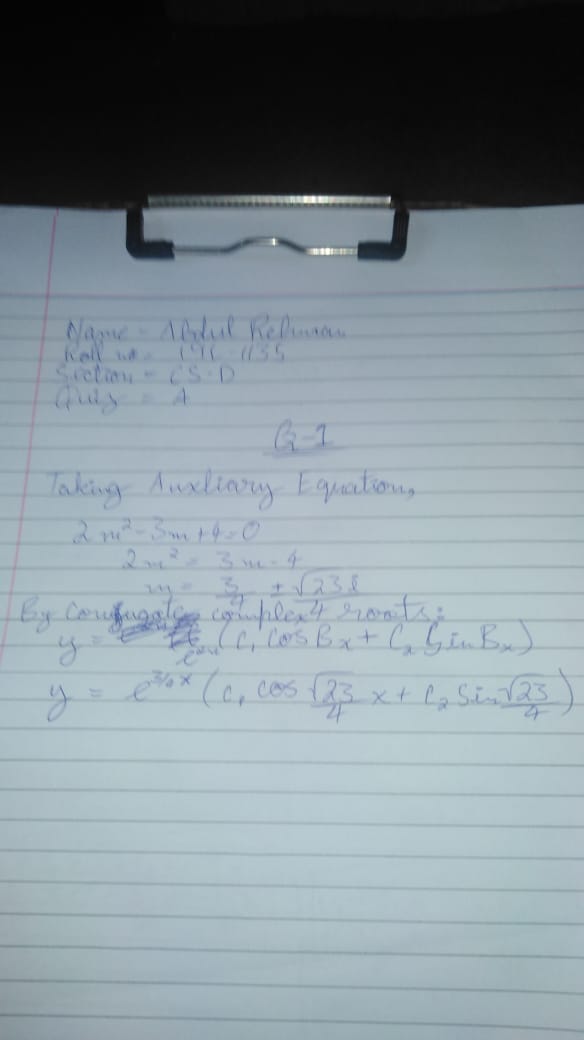 Name = Abdul Rehman
Roll no = 1135
Section = CS-D
Quiz = A
Q-1
Taking Auxliary Equation,
2m² - 3m + 4 = 0
2m² = 3m - 4
m = 3/4 ± √23 i/4
By Conjugate complex roots:
y = e^αx (C₁ cos Bx + C₂ Sin Bx)
y = e^3/4 x (C₁ cos √23/4 x + C₂ Sin √23/4)